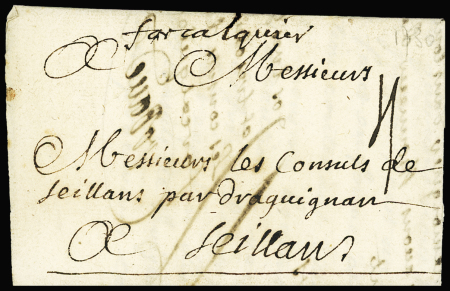 forcalquier
A Messieurs
Messieurs les Consuls de
seillans par draguignan
A seillans